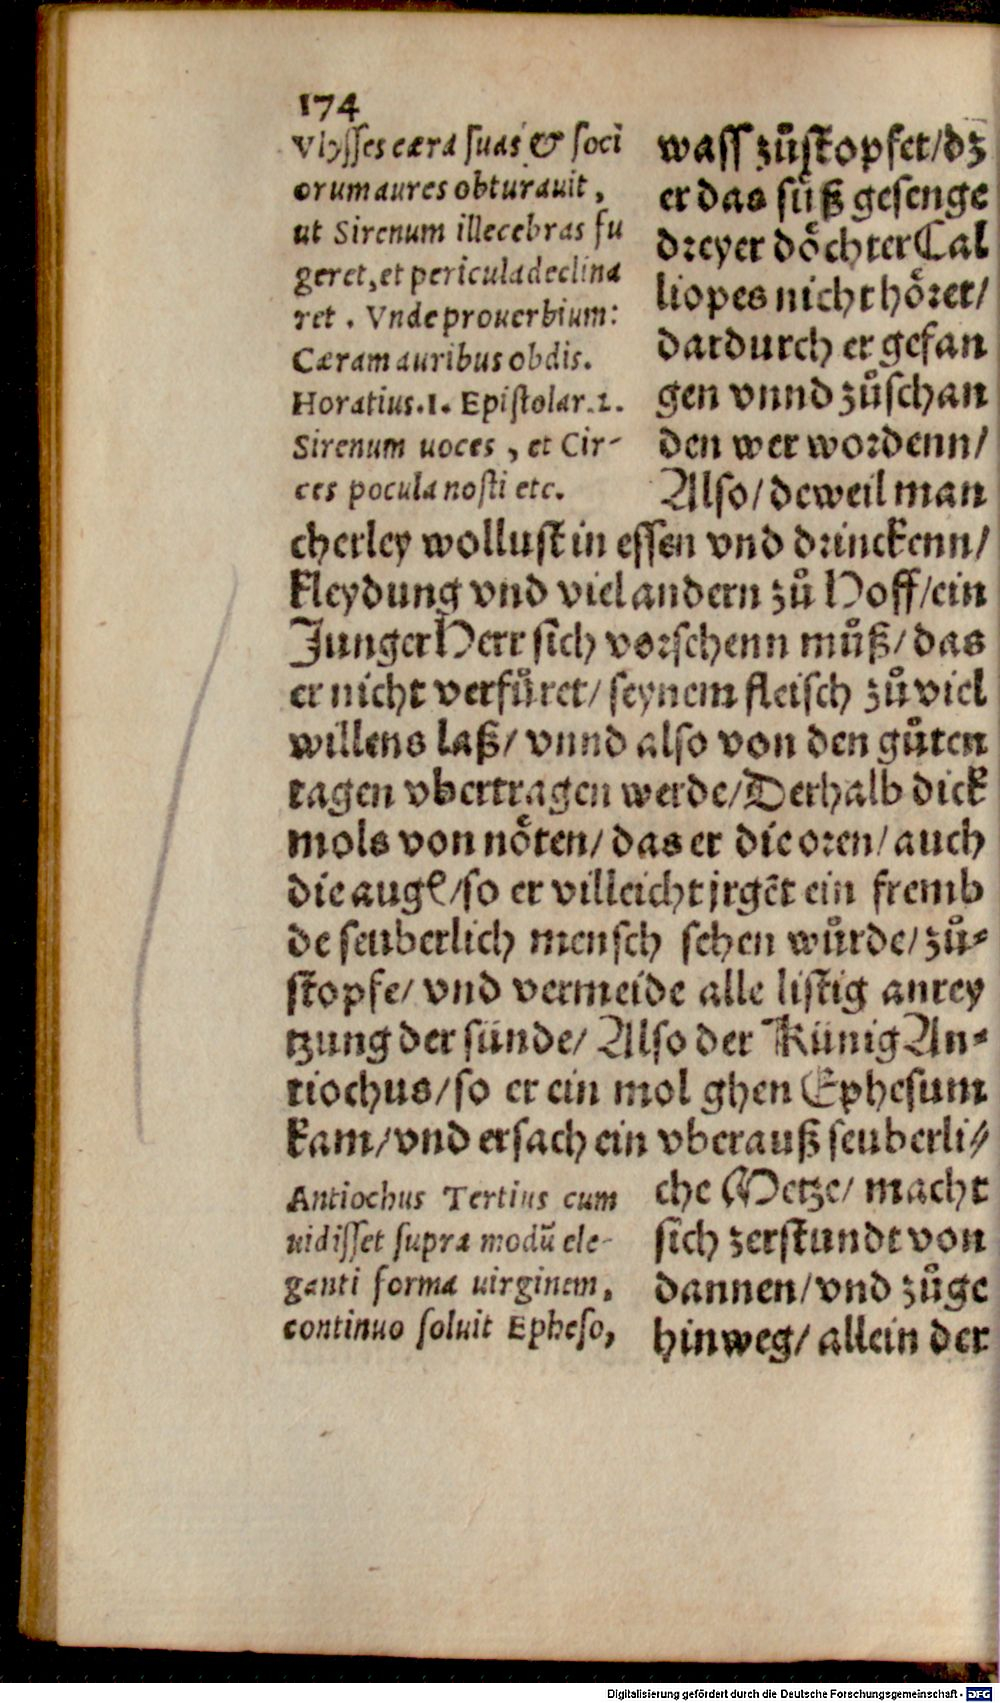 174
Vlysses cæra suas & soci
orum aures obturauit,
ut Sirenum illecebras fu
geret, et pericula declina
ret. Vnde prouerbium:
Cæram auribus obdis.
Horatius.1. Epistolar.2.
Sirenum uoces, et Cir-
ces pocula nosti etc.
wass zůstopfet/dz
er das süß gesenge
dreyer döchter Cal
liopes nicht höret/
dardurch er gefan
gen vnnd zůschan
den wer wordenn/
Also/deweil man
cherley wollust in essen vnd drinckenn/
kleydung vnd viel andern zů Hoff/ein
Junger Herr sich vorsehenn můß/das
er nicht verfůret/seynem fleisch zů viel
willens laß/vnnd also von den gůten
tagen vbertragen werde/Derhalb dick
mols von nöten/das er die oren/auch
die augē/so er villeicht jrgēt ein fremb
de seuberlich mensch sehen wůrde/zů-
stopfe/vnd vermeide alle listig anrey
tzung der sünde/Also der Künig An-
tiochus/so er ein mol ghen Ephesum
kam/vnd ersach ein vberauß seuberli-
Antiochus Tertius cum
uidisset supra modū ele-
ganti forma uirginem,
continuo soluit Epheso,
che Metze/macht
sich zerstundt von
dannen/vnd zůge
hinweg/allein der
Digitalisierung gefördert durch die Deutsche Forschungsgemeinschaft - DFG